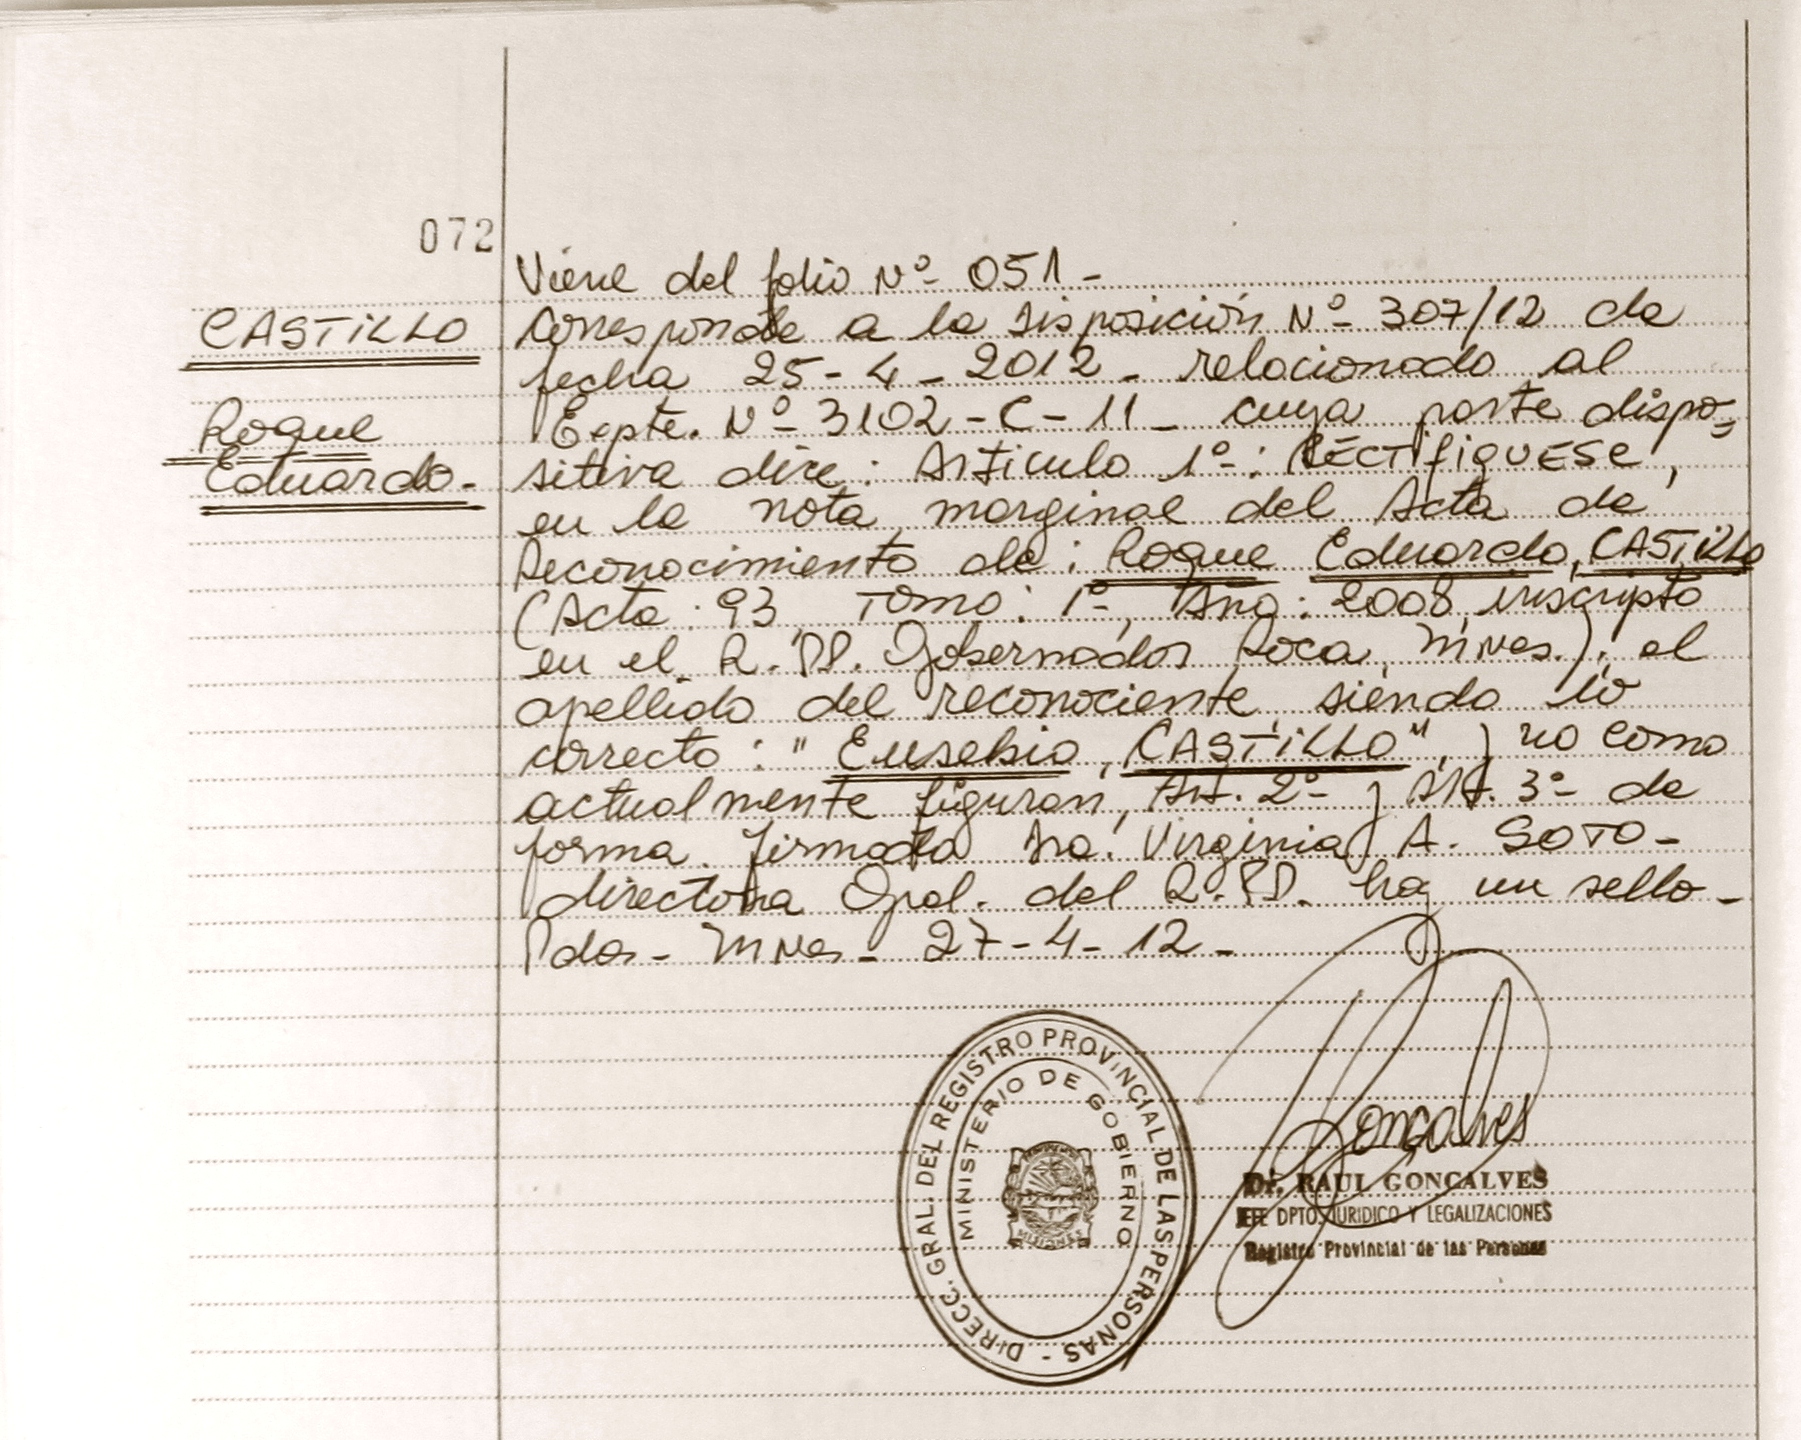 072
Viene del folio Nº 051 -
CASTILLO
Corresponde a la Disposición Nº 307/12 de
fecha 25-4-2012 - relacionado al
Roque
Expte. Nº 3102-C-11 - cuya parte dispo-
Eduardo.-
sitiva dice: Articulo 1º: RECTifiQUESE,
en la nota marginal del Acta de
Reconocimiento de: Roque Eduardo, CASTILLO
(Acta: 93, Tomo: 1º, Año: 2008, inscripto
en el R.PP. Gobernador Roca, Mnes.), el
apellido del reconociente siendo lo
correcto: "Eusebio, CASTILLO", y no como
actualmente figuran, Art. 2º y Art. 3º de
forma. Firmada Dra. Virginia A. SOTO-
directora Gral. del R.PP. hay un sello -
Pdas - Mnes - 27-4-12 -
DIRECC. GRAL. DEL REGISTRO PROVINCIAL DE LAS PERSONAS -
MINISTERIO DE GOBIERNO
MISIONES
Gonçalves
Dr. RAUL GONCALVES
JEFE DPTO. JURIDICO Y LEGALIZACIONES
Registro Provincial de las Personas